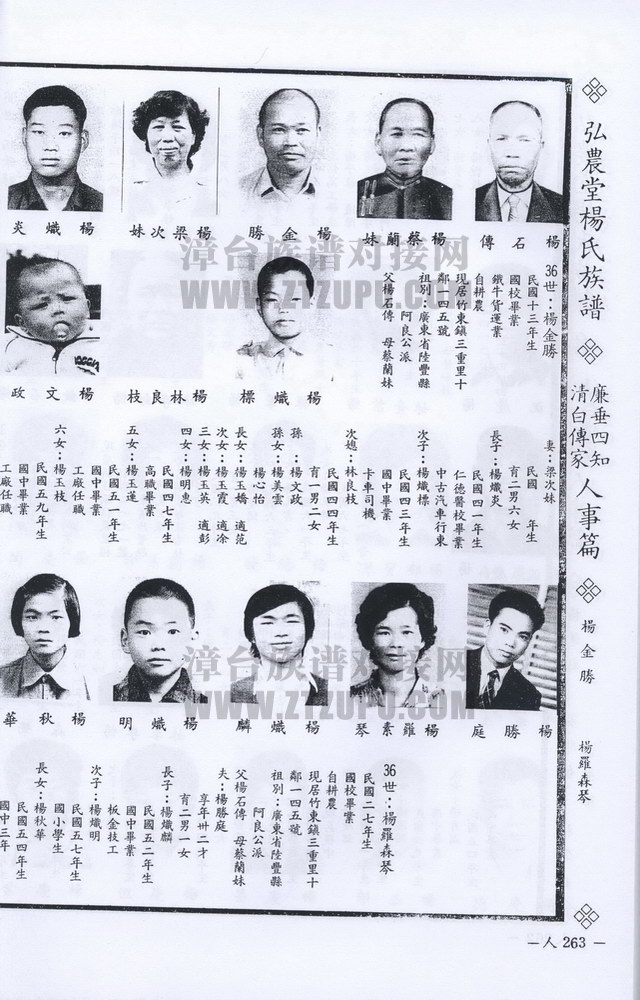 弘農堂楊氏族譜
廉垂四知
清白傳家
人事篇
楊金勝
楊羅森琴
楊石傳
楊蔡蘭妹
楊金勝
楊梁次妹
楊熾炎
36世：楊金勝
民國十三年生
國校畢業
鐵牛貨運業
自耕農
現居竹東鎮三重里十
鄰一四五號
祖別：廣東省陸豐縣
阿良公派
父楊石傳 母蔡蘭妹
楊熾標
楊林良枝
楊文政
妻：梁次妹
民國 年生
育二男六女
長子：楊熾炎
民國四一年生
仁德醫校畢業
中古汽車行東
次子：楊熾標
民國四三年生
國中畢業
卡車司機
次媳：林良枝
民國四四年生
育一男二女
孫：楊文政
孫女：楊美雲
楊心怡
長女：楊玉嬌 適范
次女：楊玉霞 適凃
三女：楊玉英 適彭
四女：楊明惠
民國四七年生
高職畢業
五女：楊玉蓮
民國五一年生
國中畢業
工廠任職
六女：楊玉枝
民國五九年生
國中畢業
工廠任職
楊勝庭
楊羅素琴
楊熾麟
楊熾明
楊秋華
36世：楊羅森琴
民國二七年生
國校畢業
自耕農
現居竹東鎮三重里十
鄰一四五號
祖別：廣東省陸豐縣
阿良公派
父楊石傳 母蔡蘭妹
夫：楊勝庭
享年卅二才
育二男一女
長子：楊熾麟
民國五二年生
國中畢業
板金技工
次子：楊熾明
民國五七年生
國小學生
長女：楊秋華
民國五四年生
國中三年
漳台族谱对接网
WWW.ZTZUPU.COM
漳台族谱对接网
WWW.ZTZUPU.COM
—人 263 —